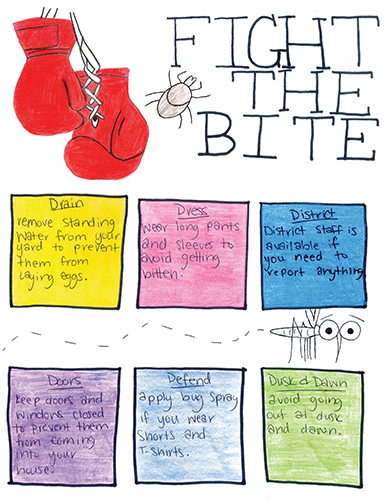 FIGHT
THE
BITE
Drain
remove standing
water from your
yard to prevent
them from
laying eggs.
Dress
wear long pants
and sleeves to
avoid getting
bitten.
District
District staff is
available if
you need to
report anything
Doors
keep doors and
windows closed
to prevent them
from coming
into your
house.
Defend
apply bug spray
if you wear
shorts and
T-shirts.
Dusk & Dawn
avoid going
out at dusk
and dawn.